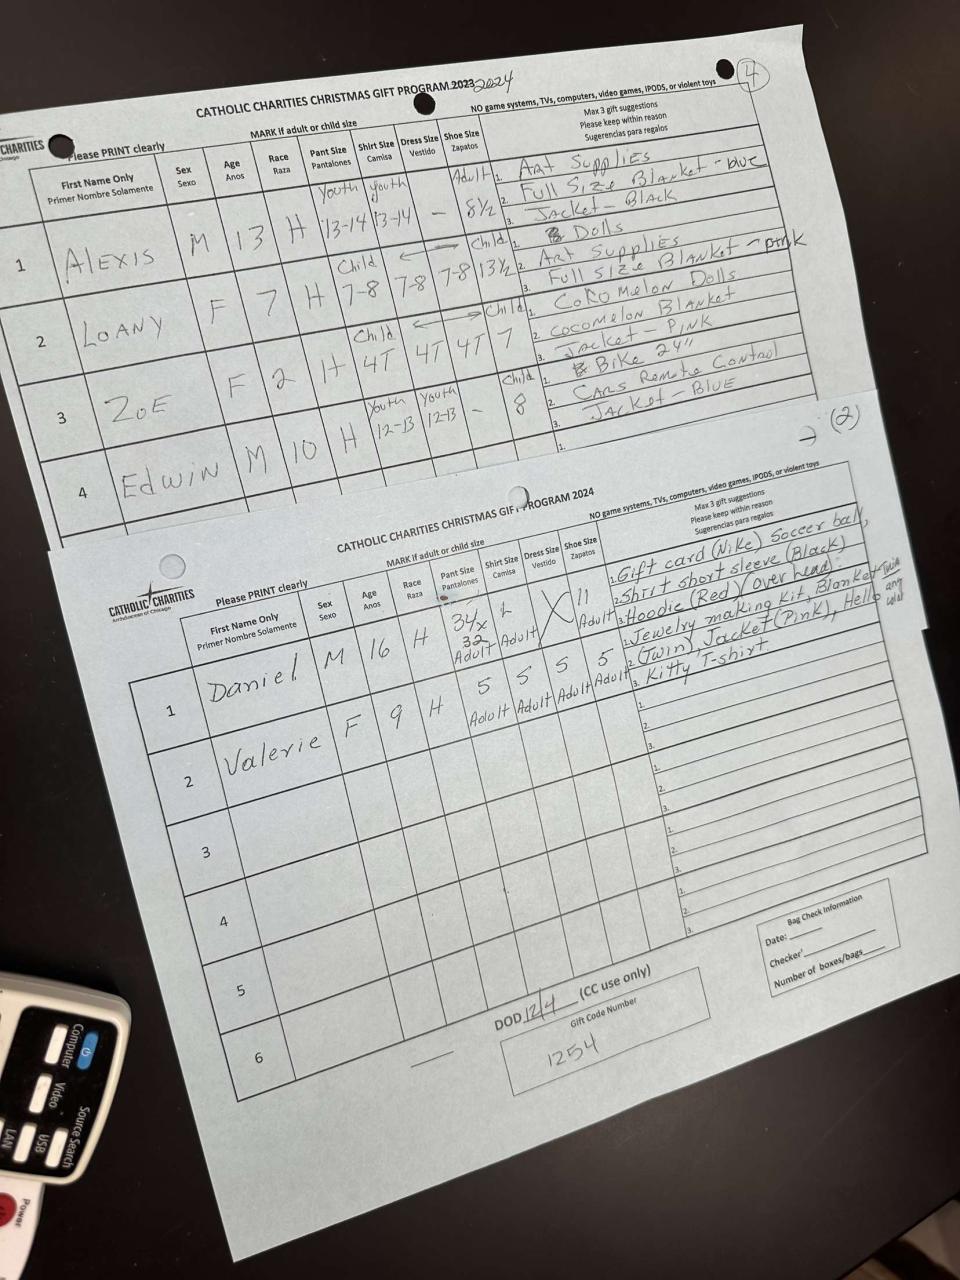 CATHOLIC CHARITIES CHRISTMAS GIFT PROGRAM 2023 2024
4
CHARITIES
Please PRINT clearly
MARK if adult or child size
NO game systems, TVs, computers, video games, IPODS, or violent toys
First Name Only
Primer Nombre Solamente
Sex
Sexo
Age
Anos
Race
Raza
Pant Size
Pantalones
Shirt Size
Camisa
Dress Size
Vestido
Shoe Size
Zapatos
Max 3 gift suggestions
Please keep within reason
Sugerencias para regalos
1 ALEXIS M 13 H Youth 13-14 Youth 13-14 - Adult 8½
1. ART SUPPLIES
2. Full Size Blanket - blue
3. JACKET - BLACK
2 LOANY F 7 H Child 7-8 7-8 7-8 Child 13½
1. Dolls
2. ART SUPPLIES
3. Full SIZE BLANKET - pink
3 ZOE F 2 H Child 4T 4T 4T Child 7
1. COCOMELON DOLLS
2. COCOMELON BLANKET
3. JACKET - PINK
4 EDWIN M 10 H Youth 12-13 Youth 12-13 - Child 8
1. Bike 24"
2. CARS REMOTE CONTROL
3. JACKET - BLUE
1.
(2)
CATHOLIC CHARITIES CHRISTMAS GIFT PROGRAM 2024
CATHOLIC CHARITIES
Archdiocese of Chicago
Please PRINT clearly
MARK if adult or child size
NO game systems, TVs, computers, video games, IPODS, or violent toys
First Name Only
Primer Nombre Solamente
Sex
Sexo
Age
Anos
Race
Raza
Pant Size
Pantalones
Shirt Size
Camisa
Dress Size
Vestido
Shoe Size
Zapatos
Max 3 gift suggestions
Please keep within reason
Sugerencias para regalos
1 Daniel M 16 H 34x32 Adult L Adult X 11 Adult
1. Gift card (Nike) Soccer ball,
2. Shirt short sleeve (Black)
3. Hoodie (Red) (over head).
2 Valerie F 9 H 5 Adult 5 Adult 5 Adult 5 Adult
1. Jewelry making Kit, Blanket
2. (Twin), Jacket (Pink), Hello
3. Kitty T-shirt.
3
1.
2.
3.
4
1.
2.
3.
5
1.
2.
3.
6
1.
2.
3.
DOD 12/4 (CC use only)
Gift Code Number
1254
Bag Check Information
Date:
Checker'
Number of boxes/bags
Computer
Video
Source Search
USB
LAN
Power